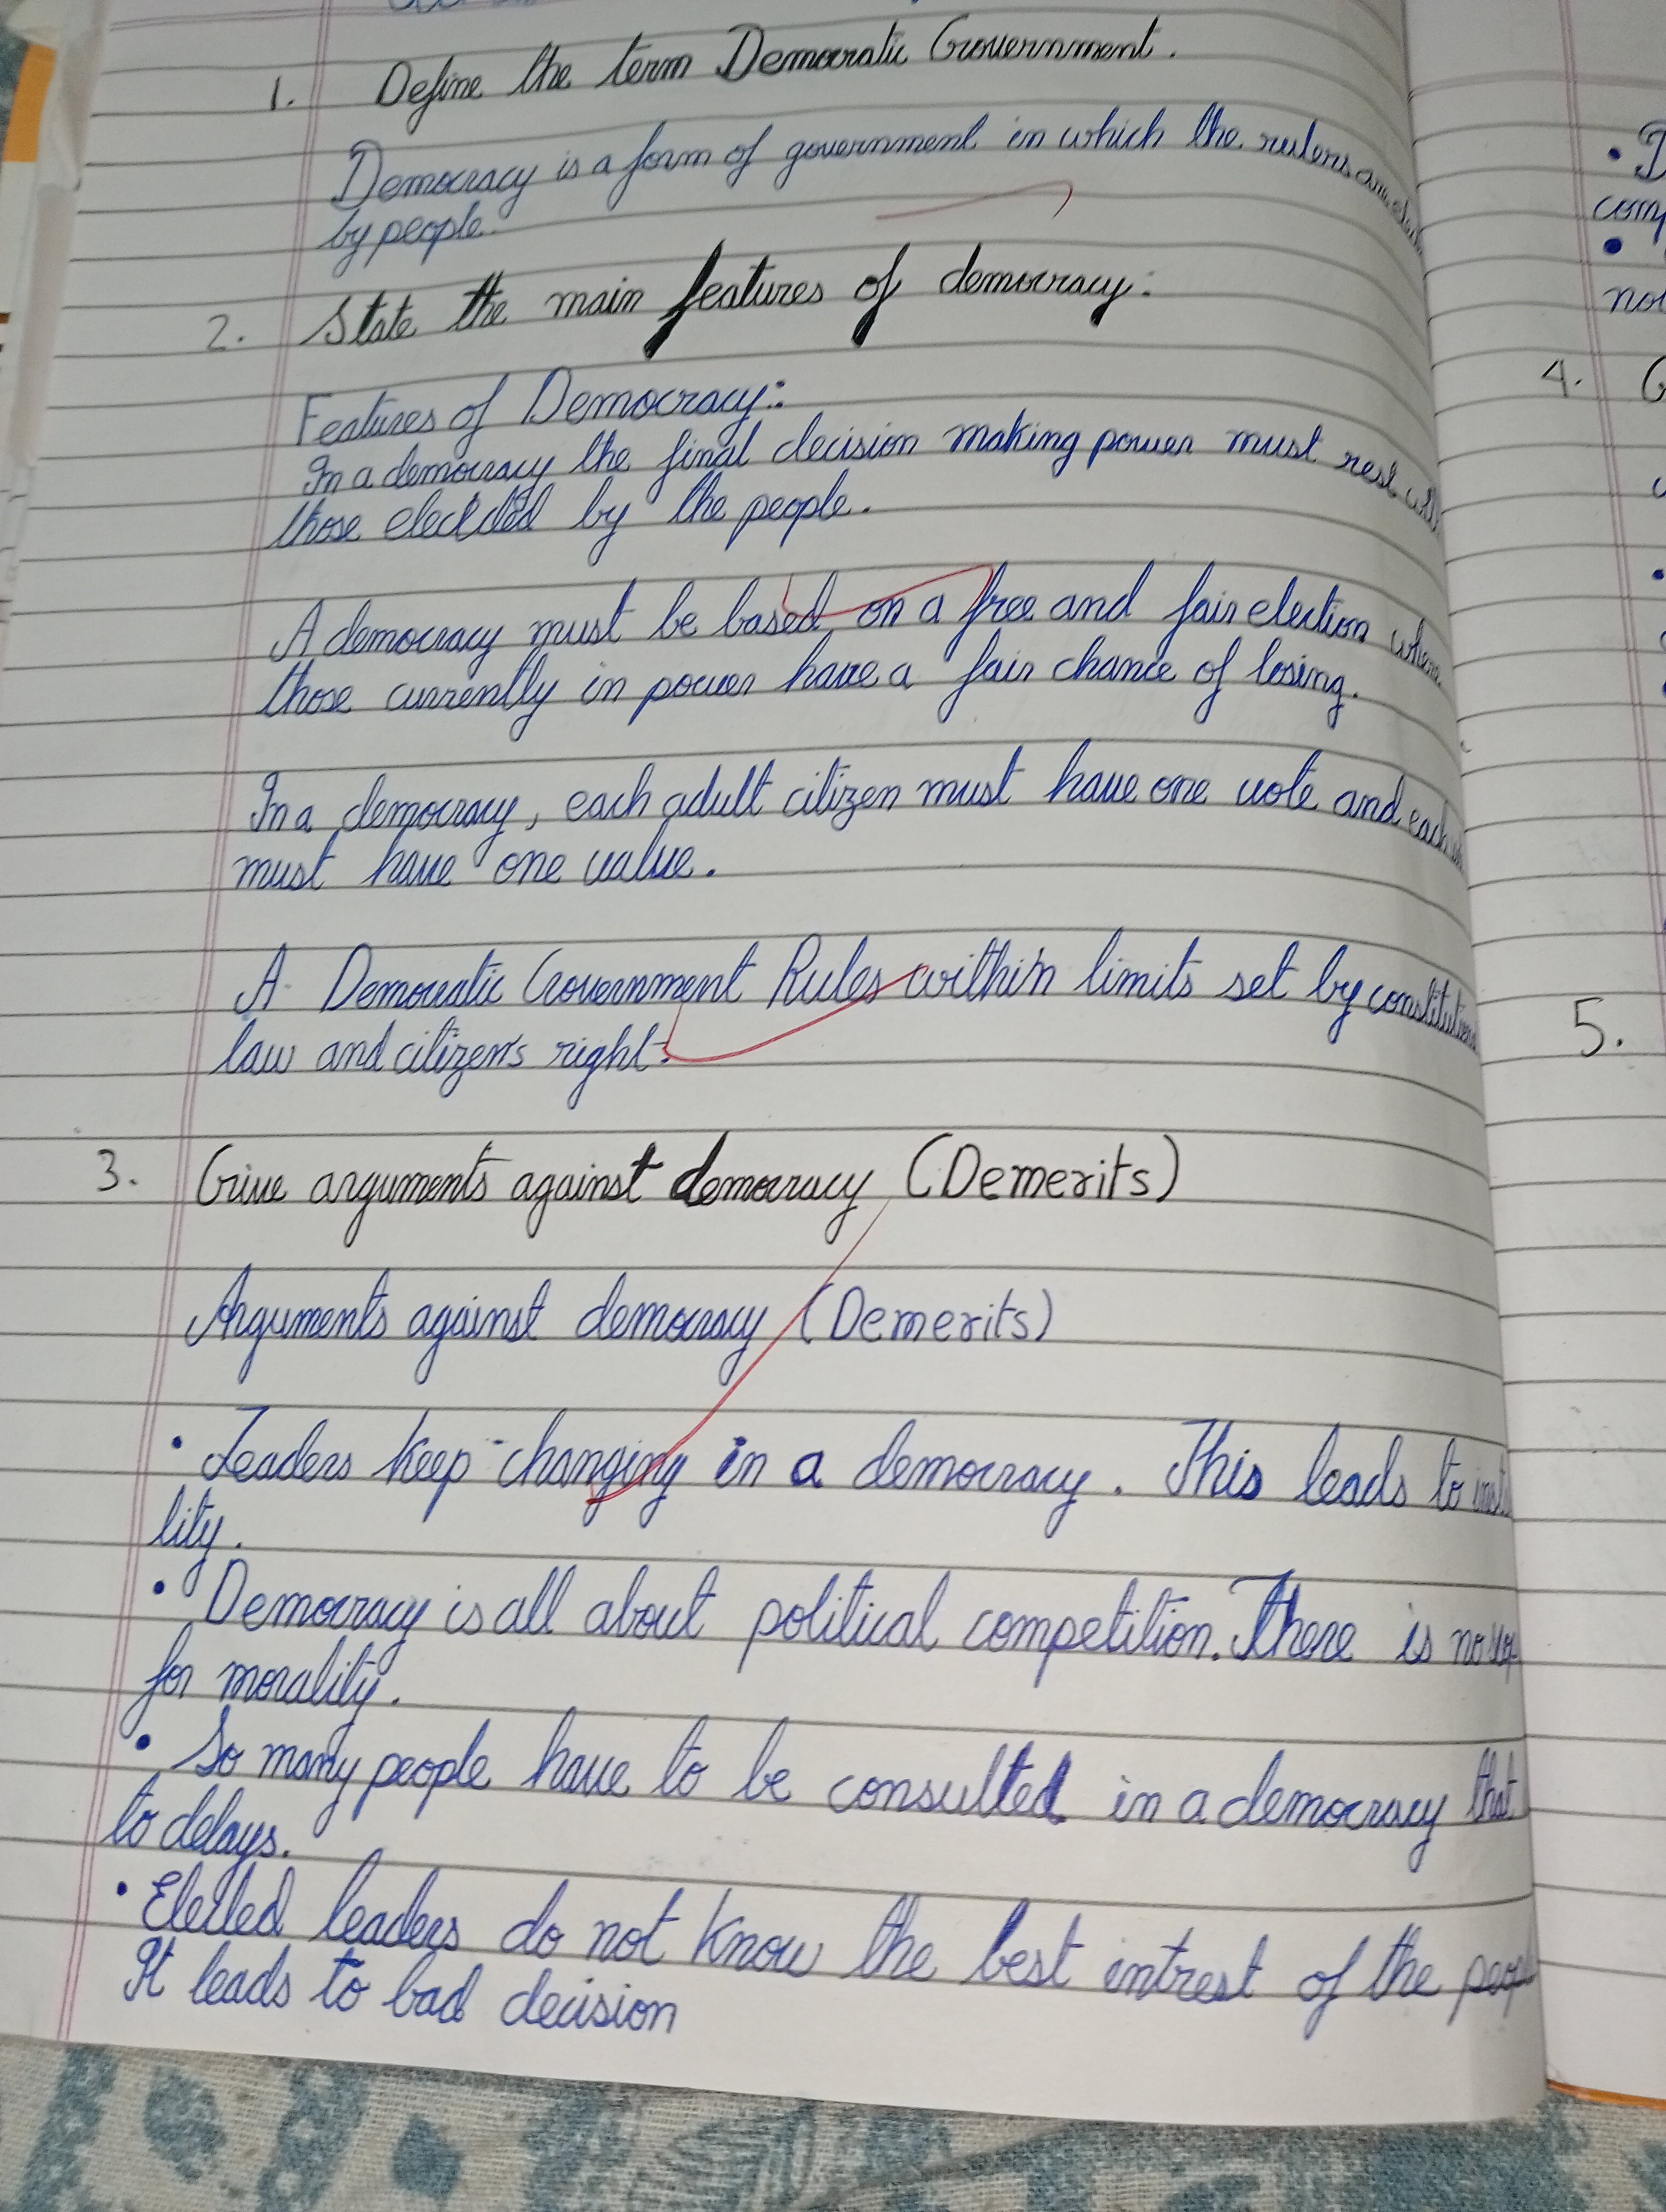 1. Define the term Democratic Government.
Democracy is a form of government in which the rulers are
by people.
2. State the main features of democracy:
Features of Democracy:
In a democracy the final decision making power must rest with
those elected by the people.
A democracy must be based on a free and fair election where
those currently in power have a fair chance of losing.
In a democracy, each adult citizen must have one vote and each
must have one value.
A Democratic Government Rules within limits set by
law and citizen's right.
3. Give arguments against democracy (Demerits)
Arguments against democracy (Demerits)
• Leaders keep changing in a democracy. This leads to
lity.
• Democracy is all about political competition. There is no
for morality.
• So many people have to be consulted in a democracy that
to delays.
• Elected leaders do not know the best intrest of the
It leads to bad decision
com
not
4.
5.